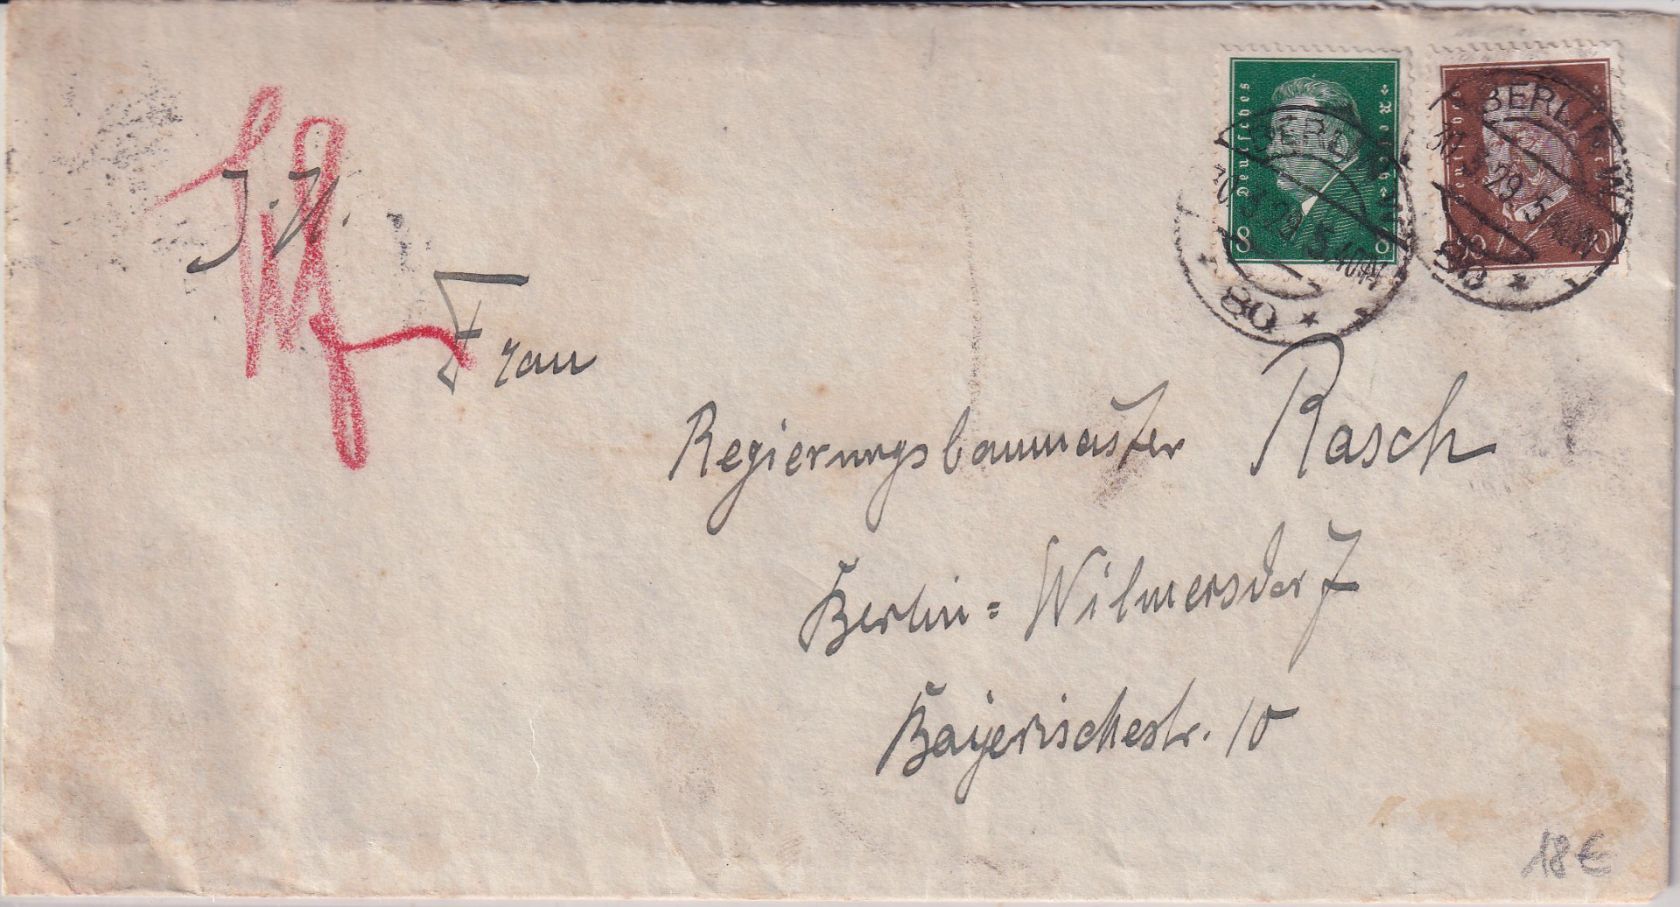 Deutsches Reich
8 8
Deutsches Reich
30
BERLIN W
80
BERLIN W
30.3.29.5
80
J.H.
Frau
Regierungsbaumeister Rasch
Berlin=Wilmersdorf
Bayerischestr. 10
18€